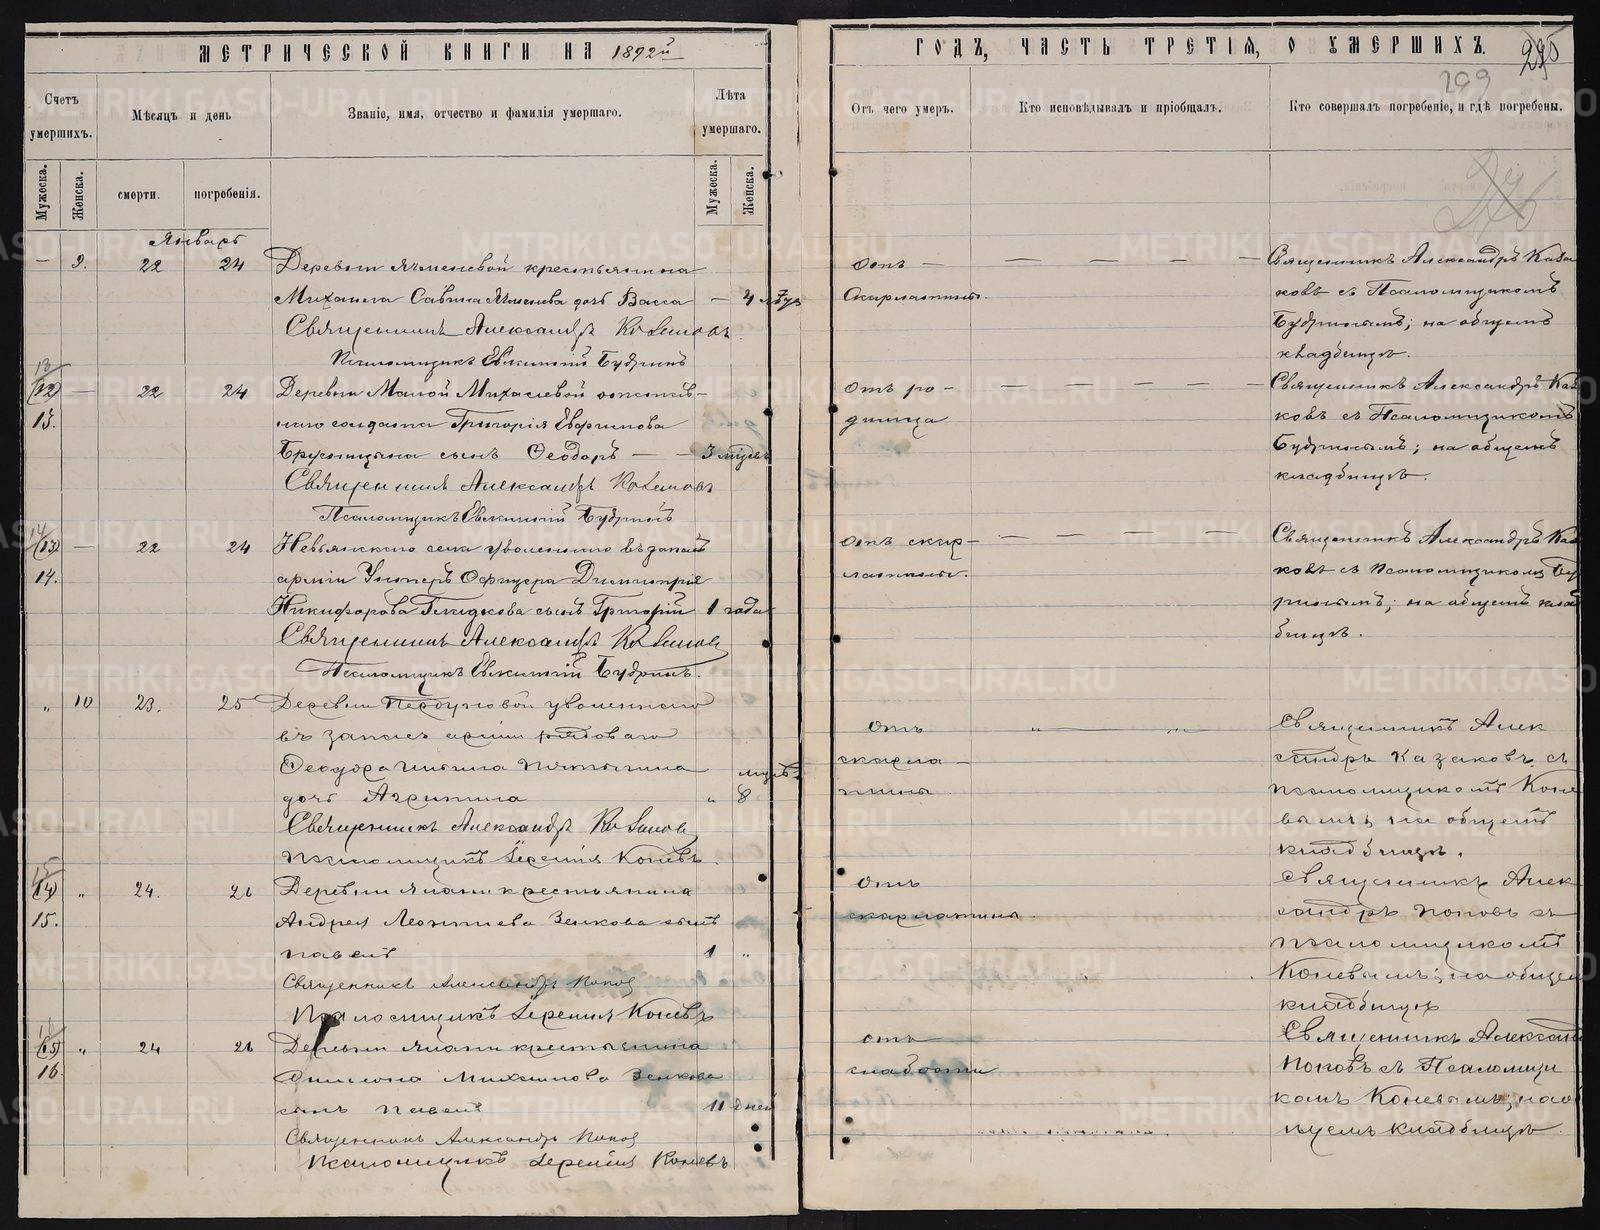 МЕТРИЧЕСКОЙ КНИГИ НА 1892й
ГОДЪ, ЧАСТЬ ТРЕТІЯ, О УМЕРШИХЪ.
299
Счетъ умершихъ.
Мѣсяцъ и день
Званіе, имя, отчество и фамилія умершаго.
Лѣта умершаго.
Отъ чего умеръ.
Кто исповѣдывалъ и пріобщалъ.
Кто совершалъ погребеніе, и гдѣ погребены.
Мужеска.
Женска.
смерти.
погребенія.
Мужеска.
Женска.
Январь
— 9. 22 24 Деревни Ячменевой крестьянина
Михаила Савина Ячменева дочь Васса — 4
Священникъ Александръ Казаковъ
Псаломщикъ Евкипій Будринъ
Отъ — — — — —
Скарлатины.
Священникъ Александръ Каза
ковъ съ Псаломщикомъ
Будринымъ; на общемъ
кладбищѣ.
13
(12) — 22 24 Деревни Малой Михалевой отстав-
13. наго солдата Григорія Евфимова
Брусницына сынъ Ѳеодоръ — — 3
Священникъ Александръ Казаковъ
Псаломщикъ Будринъ
Отъ ро- — — — — —
димца
Священникъ Александръ Каза
ковъ съ Псаломщикомъ
Будринымъ; на общемъ
кладбищѣ.
14
(13) — 22 24 Невьянскаго села уволеннаго въ запасъ
14. арміи Унтеръ Офицера Димитрія
Никифорова Гладкова сынъ Григорій 1 года
Священникъ Александръ Казаковъ
Псаломщикъ Будринъ.
отъ скар- — — — —
латины.
Священникъ Александръ Каза
ковъ съ Псаломщикомъ Бу
дринымъ; на общемъ клад
бищѣ.
„ 10 23. 25 Деревни уволеннаго
въ запасъ арміи рядоваго
Ѳеодора
дочь Агрипина „ 8
Священникъ Александръ Казаковъ
Псаломщикъ Іеремія Коневъ.
Отъ „ „
скарла-
тины.
Священникъ Алек
сандръ Казаковъ съ
псаломщикомъ Коне
вымъ; на общемъ
кладбищѣ.
15
(14) „ 24. 26 Деревни Ялани крестьянина
15. Андрея Леонтіева Зенкова сынъ
Павелъ 1 „
Священникъ Александръ Поповъ
Псаломщикъ Іеремія Коневъ
Отъ
скарлатины.
Священникъ Алек
сандръ Поповъ съ
псаломщикомъ
Коневымъ; на общем
кладбищѣ
(15) „ 24 26 Деревни Ялани крестьянина
16. Филипа Зенкова
сынъ Павелъ 11 дней
Священникъ Александръ Поповъ
Псаломщикъ Іеремія Коневъ
отъ
слабости
Священникъ Александръ
Поповъ съ Псаломщи
комъ Коневымъ; на об
щемъ кладбищѣ.
METRIKI.GASO-URAL.RU